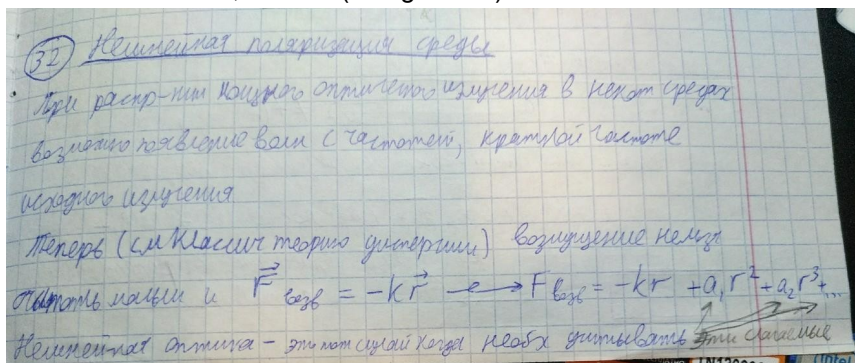 32 Нелинейная поляризация среды
При распр-нии мощного оптического излучения в некот средах
возможно появление волн с частотой, кратной частоте
исходного излучения
Теперь (см Классич теорию дисперсии) возмущение нельзя
малым и F⃗ возв = -k r⃗ → F возв = -kr + a₁r² + a₂r³ + ...
Нелинейная оптика - это тот случай когда необх учитывать эти слагаемые